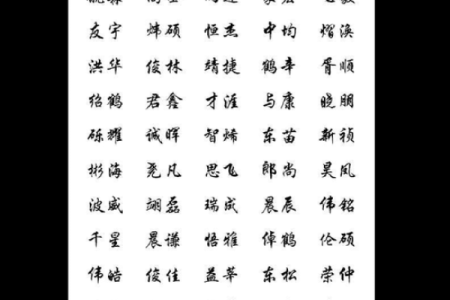 友宇 炜硕 恒杰 中均 熠涣
洪华 俊林 靖捷 鹤辛 胥顺
绍鹤 君鑫 才涯 与康 晓朋
砾耀 诚晖 智烯 东苗 新祯
彬海 尧凡 思飞 郎尚 昊凤
波威 翊磊 瑞成 晨辰 伟铭
千星 晨谦 悟雅 倬鹤 伦硕
伟皓 俊佳 益苹 东松 荣仲